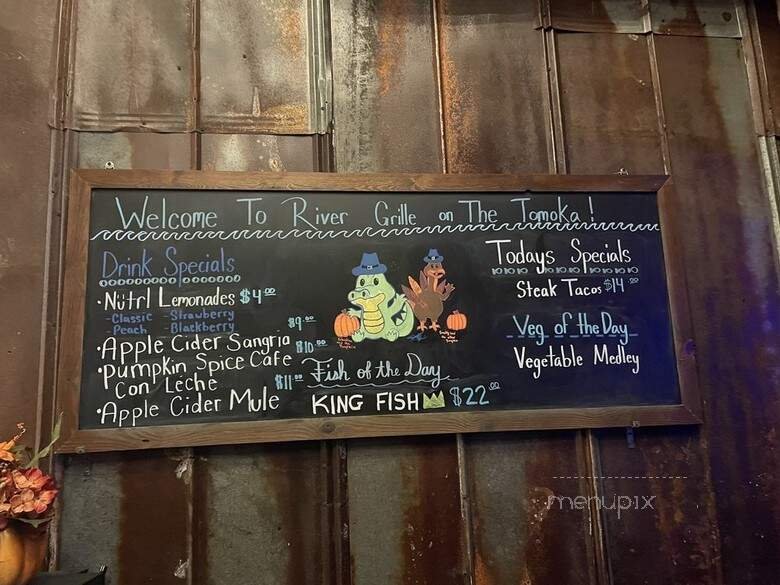 Welcome To River Grille on The Tomoka!
Drink Specials
•Nütrl Lemonades $4.00
-Classic -Strawberry
-Peach -Blackberry
•Apple Cider Sangria $9.00
•Pumpkin Spice Cafe Con Leche $10.00
•Apple Cider Mule $11.00
Fish of the Day
KING FISH $22.00
Todays Specials
Steak Tacos $14.00
Veg of the Day
Vegetable Medley
menupix